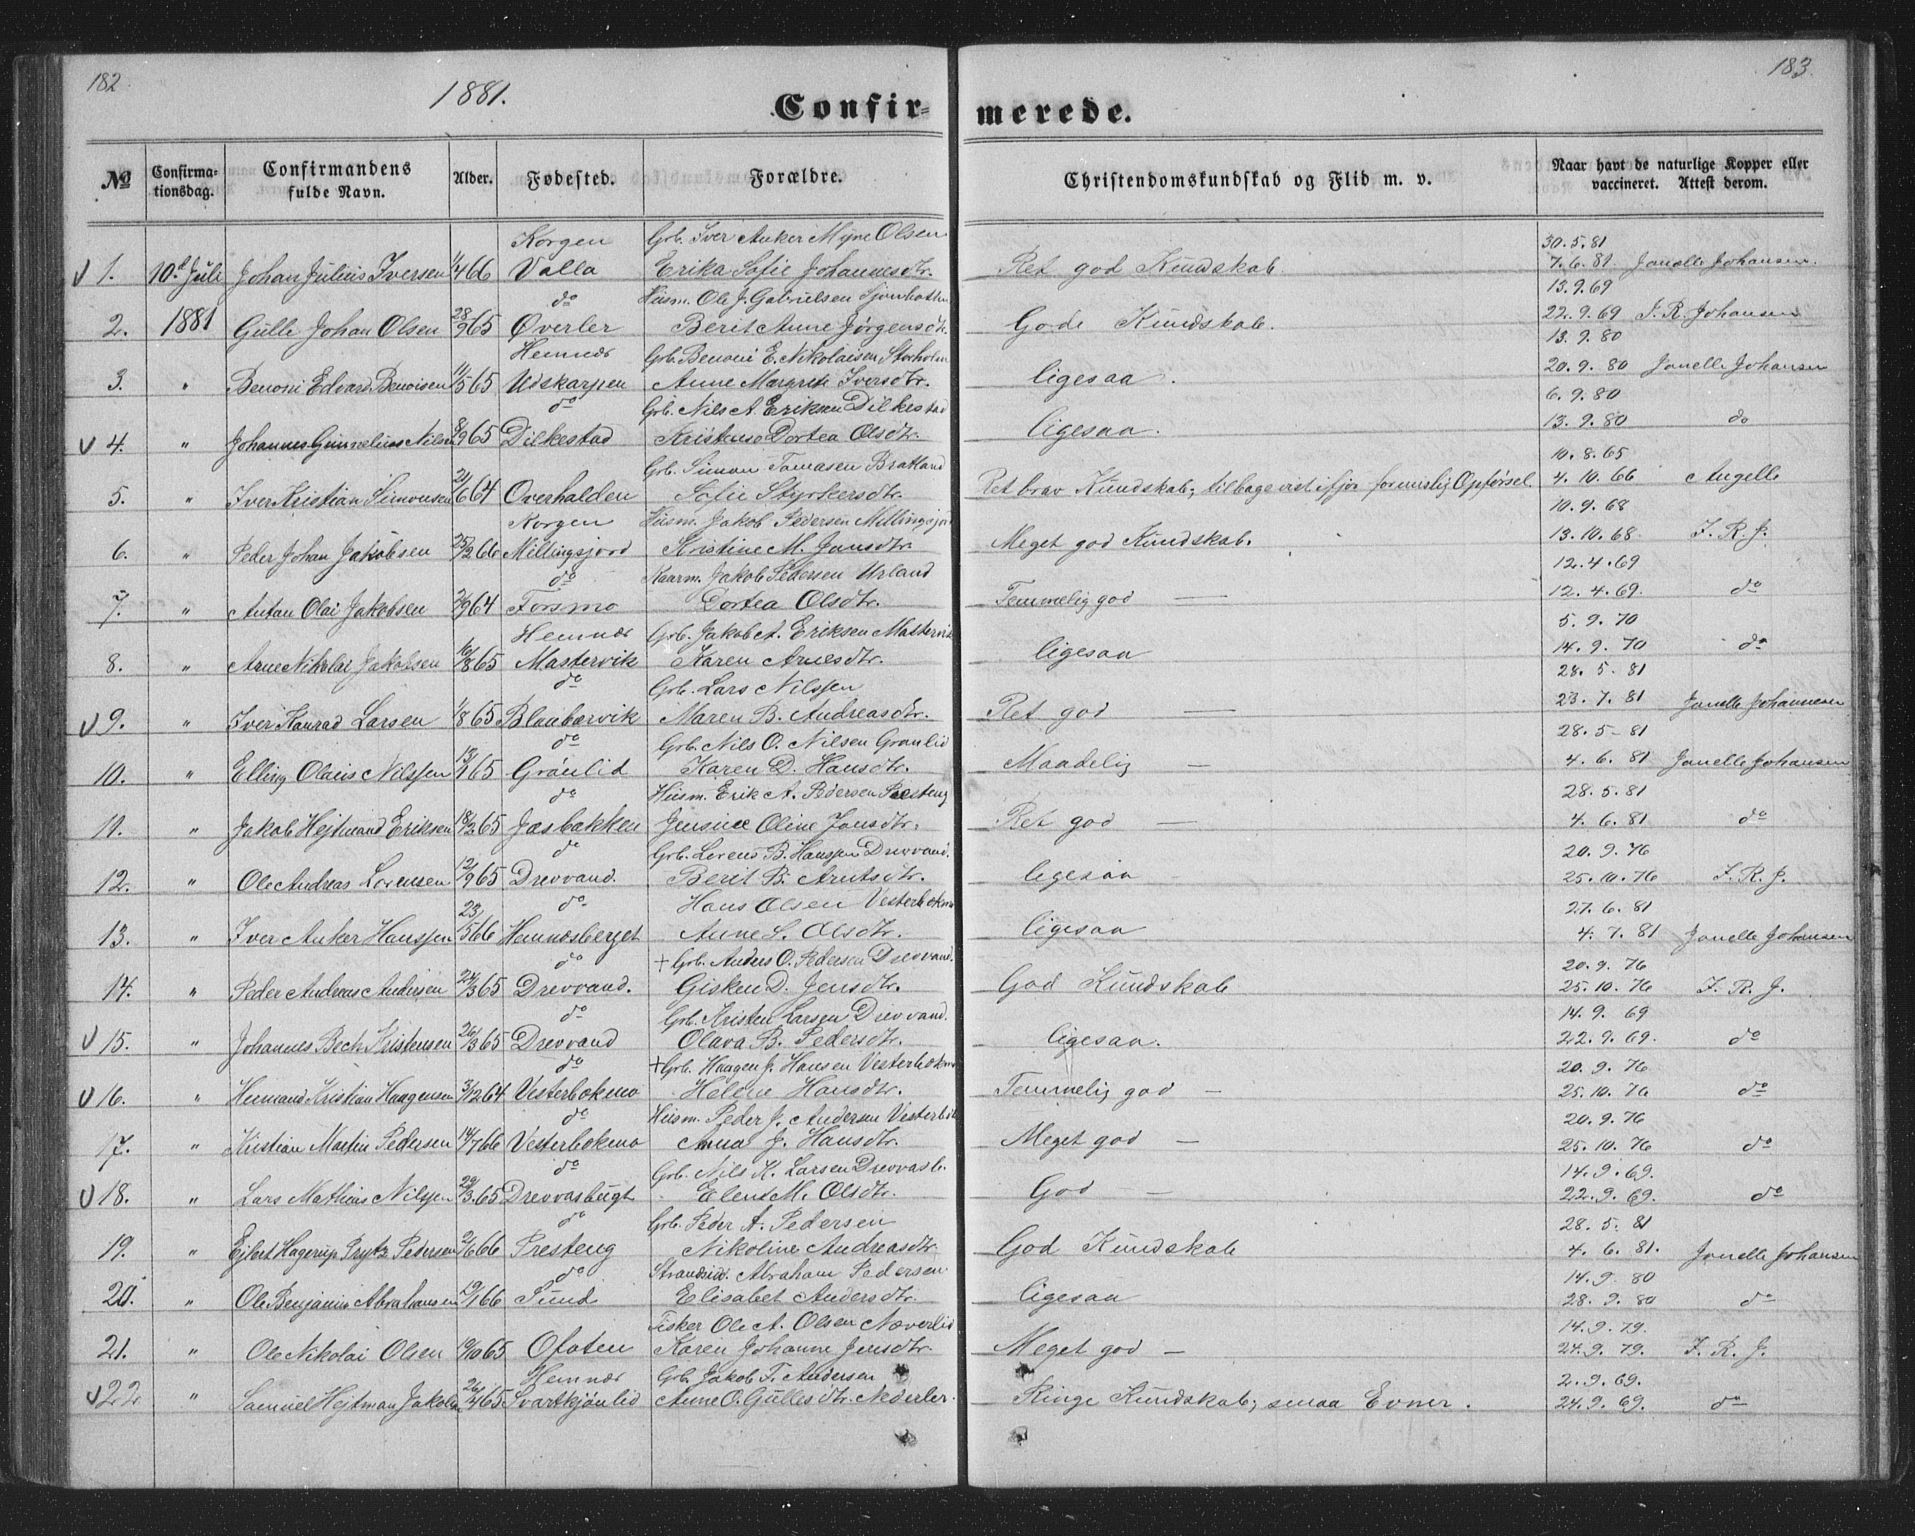 182
1881.
183.
Confir-
merede.
No
Confirma-tionsdag.
Confirmandens fulde Navn.
Alder.
Fødested.
Forældre.
Christendomskundskab og Flid m. v.
Naar havt de naturlige Kopper eller vaccineret. Attest derom.
Korgen Grb. Iver Anker Olsen 30.5.81
1. 10d Juli Johan Julius Iversen 1/4 66 Valla Erika Sofie Johannesdtr. Ret god Kundskab. 7.6.81 Jonelle Johansen.
do Husm. Ole J. Gabrielsen 13.9.69
2. 1881 Gulle Johan Olsen 28/9 65 Øverler Berit Anne Jørgensdtr. Gode Kundskab. 22.9.69 J. R. Johansen
Hemnær Grb. Benoni E. Nikolaisen Storholm 13.9.80
3. " Benoni Edvard Benoisen 11/5 65 Udskarpen Anne Margrete Iversdtr. ligesaa. 20.9.80 Jonelle Johansen
do Grb. Nils A. Eriksen Dilkestad 6.9.80
4. " Johannes Nilsen 8/9 65 Dilkestad Dortea Olsdtr. ligesaa. 13.9.80 do
Grb. Simon Tomasen Bratland 10.8.65
5. " Iver Kristian Simonsen 21/6 64 Overhalden Sofie Styrkersdtr. Ret brav Kundskab; tilbagevist ifjor for Opførsel. 4.10.66 Angelle
Korgen Husm. Jakob Pedersen 10.9.68
6. " Peder Johan Jakobsen 25/2 66 Millingsjord Kristine M. Jonsdtr. Meget god Kundskab. 13.10.68. J. R. J.
do Kaarm. Jakob Pedersen Urland 12.4.69
7. " Antan Olai Jakobsen 2/9 64 Forsmo Dortea Olsdtr. Temmelig god — 12.4.69. do
Hemnær Grb. Jakob A. Eriksen Mastervik 5.9.70
8. " Arne Nikolai Jakobsen 16/8 65 Mastervik Karen Arnesdtr. ligesaa 14.9.70 do
do Grb. Lars Nilssen 28.5.81
9. " Iver Konrad Larsen 1/8 65 Blaubærvik Maren B. Andreasdtr. Ret god — 23.7.81 Jonelle Johannesen
do Grb. Nils O. Nilsen Grønlid 28.5-81
10. " Elling Olaus Nilssen 13/1 65 Grønlid Karen D. Hansdtr. Maadelig — 4.6.81 Jonelle Johansen
do Husm. Erik A. Pedersen 28.5.81
11. " Jakob Hejtmand Eriksen 18/2 65 Jasbakken Jensine Oline Jonsdtr. Ret god — 4.6.81 do
do Grb. Lorens B. Hanssen Drevvand. 20.9.76
12. " Ole Andreas Lorensen 12/9 65 Drevvand. Berit B. Arntsdtr. ligesaa 25.10.76 J. R. J.
do Hans Olsen 27.6.81
13. " Iver Anker Hanssen 23/5 66 Hemnesberget Anne S. Olsdtr. ligesaa 4.7.81 Jonelle Johansen
do + Grb. Anders O. Pedersen Drevvand. 20.9.76
14. " Peder Andreas Andersen 24/3 65 Drevvand. Gisken D. Jensdtr. God Kundskab 25.10.76 J. R. J.
do Grb. Kristen Larsen Drevvand. 14.9.69
15. " Johannes Bech Kristensen 26/3 65 Drevvand Olava B. Pedersdtr. ligesaa. 22.9.69. do
do + Grb. Haagen J. Hansen 20.9.76
16. " Kristian Haagensen 3/12 64 Vesterbekmo Helene Hansdtr. Temmelig god — 25.10.76 do
do Husm. Peder J. Andersen 20.9.76
17. " Kristian Martin Pedersen 14/7 66 Vesterbekmo Anna J. Hansdtr. Meget god — 25.10.76 do
do Grb. Nils K. Larsen Drevvasb. 14.9.69.
18. " Lars Mathias Nilssen 29/3 65 Drevvasbugt Elen M. Olsdtr. God — 22.9.69. do
do Grb. Peder A. Pedersen 28.5.81
19. " Ejlert Hagerup Prytz Pedersen 2/6 66 Presteng Nikoline Andreasdtr. God Kundskab 4.6.81. Jonelle Johansen
do Strandsid. Abraham Pedersen 14.9.80
20. " Ole Benjamin Abrahamsen 19/1 66 Sund Elisabet Andersdtr. ligesaa 28.9.80 do
Fisker Ole A. Olsen Næverlid 14.9.79.
21. " Ole Nikolai Olsen 9/10 65 Ofoten Karen Johanne Jensdtr. Meget god — 24.9.79. J. R. J.
Hemnær Grb. Jakob F. Andersen 2.9.69.
22 " Samuel Hejtman Jakobsen 65 Svartkjønlid Anne O. Gullesdtr. Nederler. Ringe Kundskab; smaa Evner. 24.9.69. do